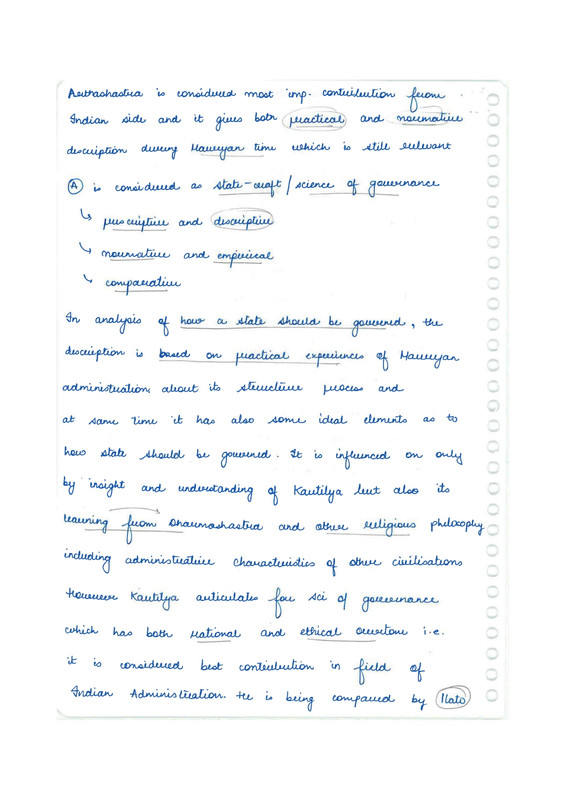 Arthashastra is considered most imp. contribution from
Indian side and it gives both practical and normative
description during Mauryan time which is still relevant
(A) is considered as state-craft / science of governance
↳ prescriptive and descriptive
↳ normative and empirical
↳ comparative
In analysis of how a state should be governed, the
description is based on practical experiences of Mauryan
administration, about its structure process and
at same time it has also some ideal elements as to
how state should be governed. It is influenced on only
by insight and understanding of Kautilya but also its
learning from Dharmashastra and other religious philosophy
including administrative characteristics of other civilisations
However Kautilya articulates for sci of governance
which has both rational and ethical overtone i.e.
it is considered best contribution in field of
Indian Administration. He is being compared by Plato